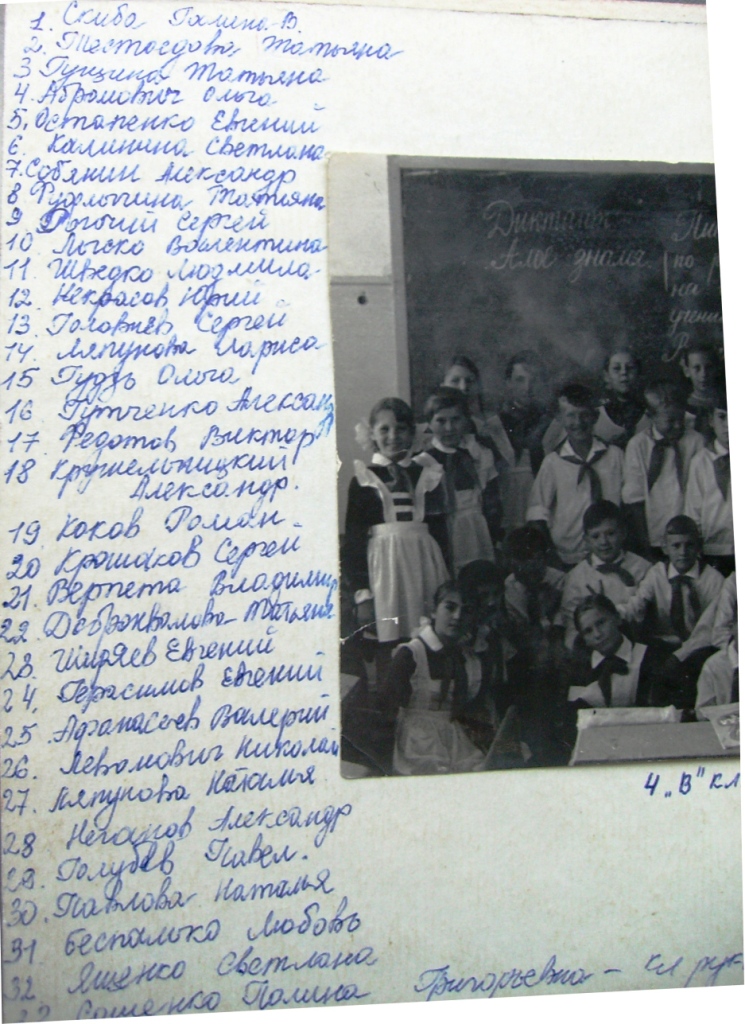 1. Скиба Галина В.
2. Тестоедова Татьяна
3 Гущина Татьяна
4. Абромович Ольга
5. Остапенко Евгений
6. Калинина Светлана
7. Собянин Александр
8 Татьяна
9 Рогочий Сергей
10 Лыско Валентина
11. Шведко Людмила
12. Некрасов Юрий
13. Головнёв Сергей
14. Ляпунова Лариса
15 Гудзь Ольга
16 Гутченко Александр
17. Федотов Виктор
18 Крушельницкий
Александр.
19. Коков Роман
20 Крошаков Сергей
21 Вертета Владимир
22 Доброхвалова Татьяна
23. Ширяев Евгений
24. Герасимов Евгений
25. Афанасьев Валерий
26. Левданович Николай
27. Ляпунова Наталья
28 Неганов Александр
29. Голубев Павел.
30. Павлова Наталья
31 Беспалько Любовь
32 Ященко Светлана
Сошенко Полина Григорьевна - кл рук
Диктант
Алое знамя.
по
на
4 „В" кл